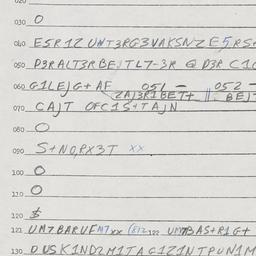 020
030 O
040 ESR1Z UNT3RG3VAKSNZE5RS+
050 D3RALT3RBEJTL7-3R @ D3R C1
060 G1LEJG+ AF 051 — 052 —
ZAJ3R1BET+ || BEJ
070 CAJT OFC1S+TAJN
080 O
090 S+NO,PX3T xx
100 O
110 O
120 $
121 UM7BARUEM7xx (K12122 UM7BAS+R1G+
130 DUSK1ND2M1TAG1Z1NTPUN1M